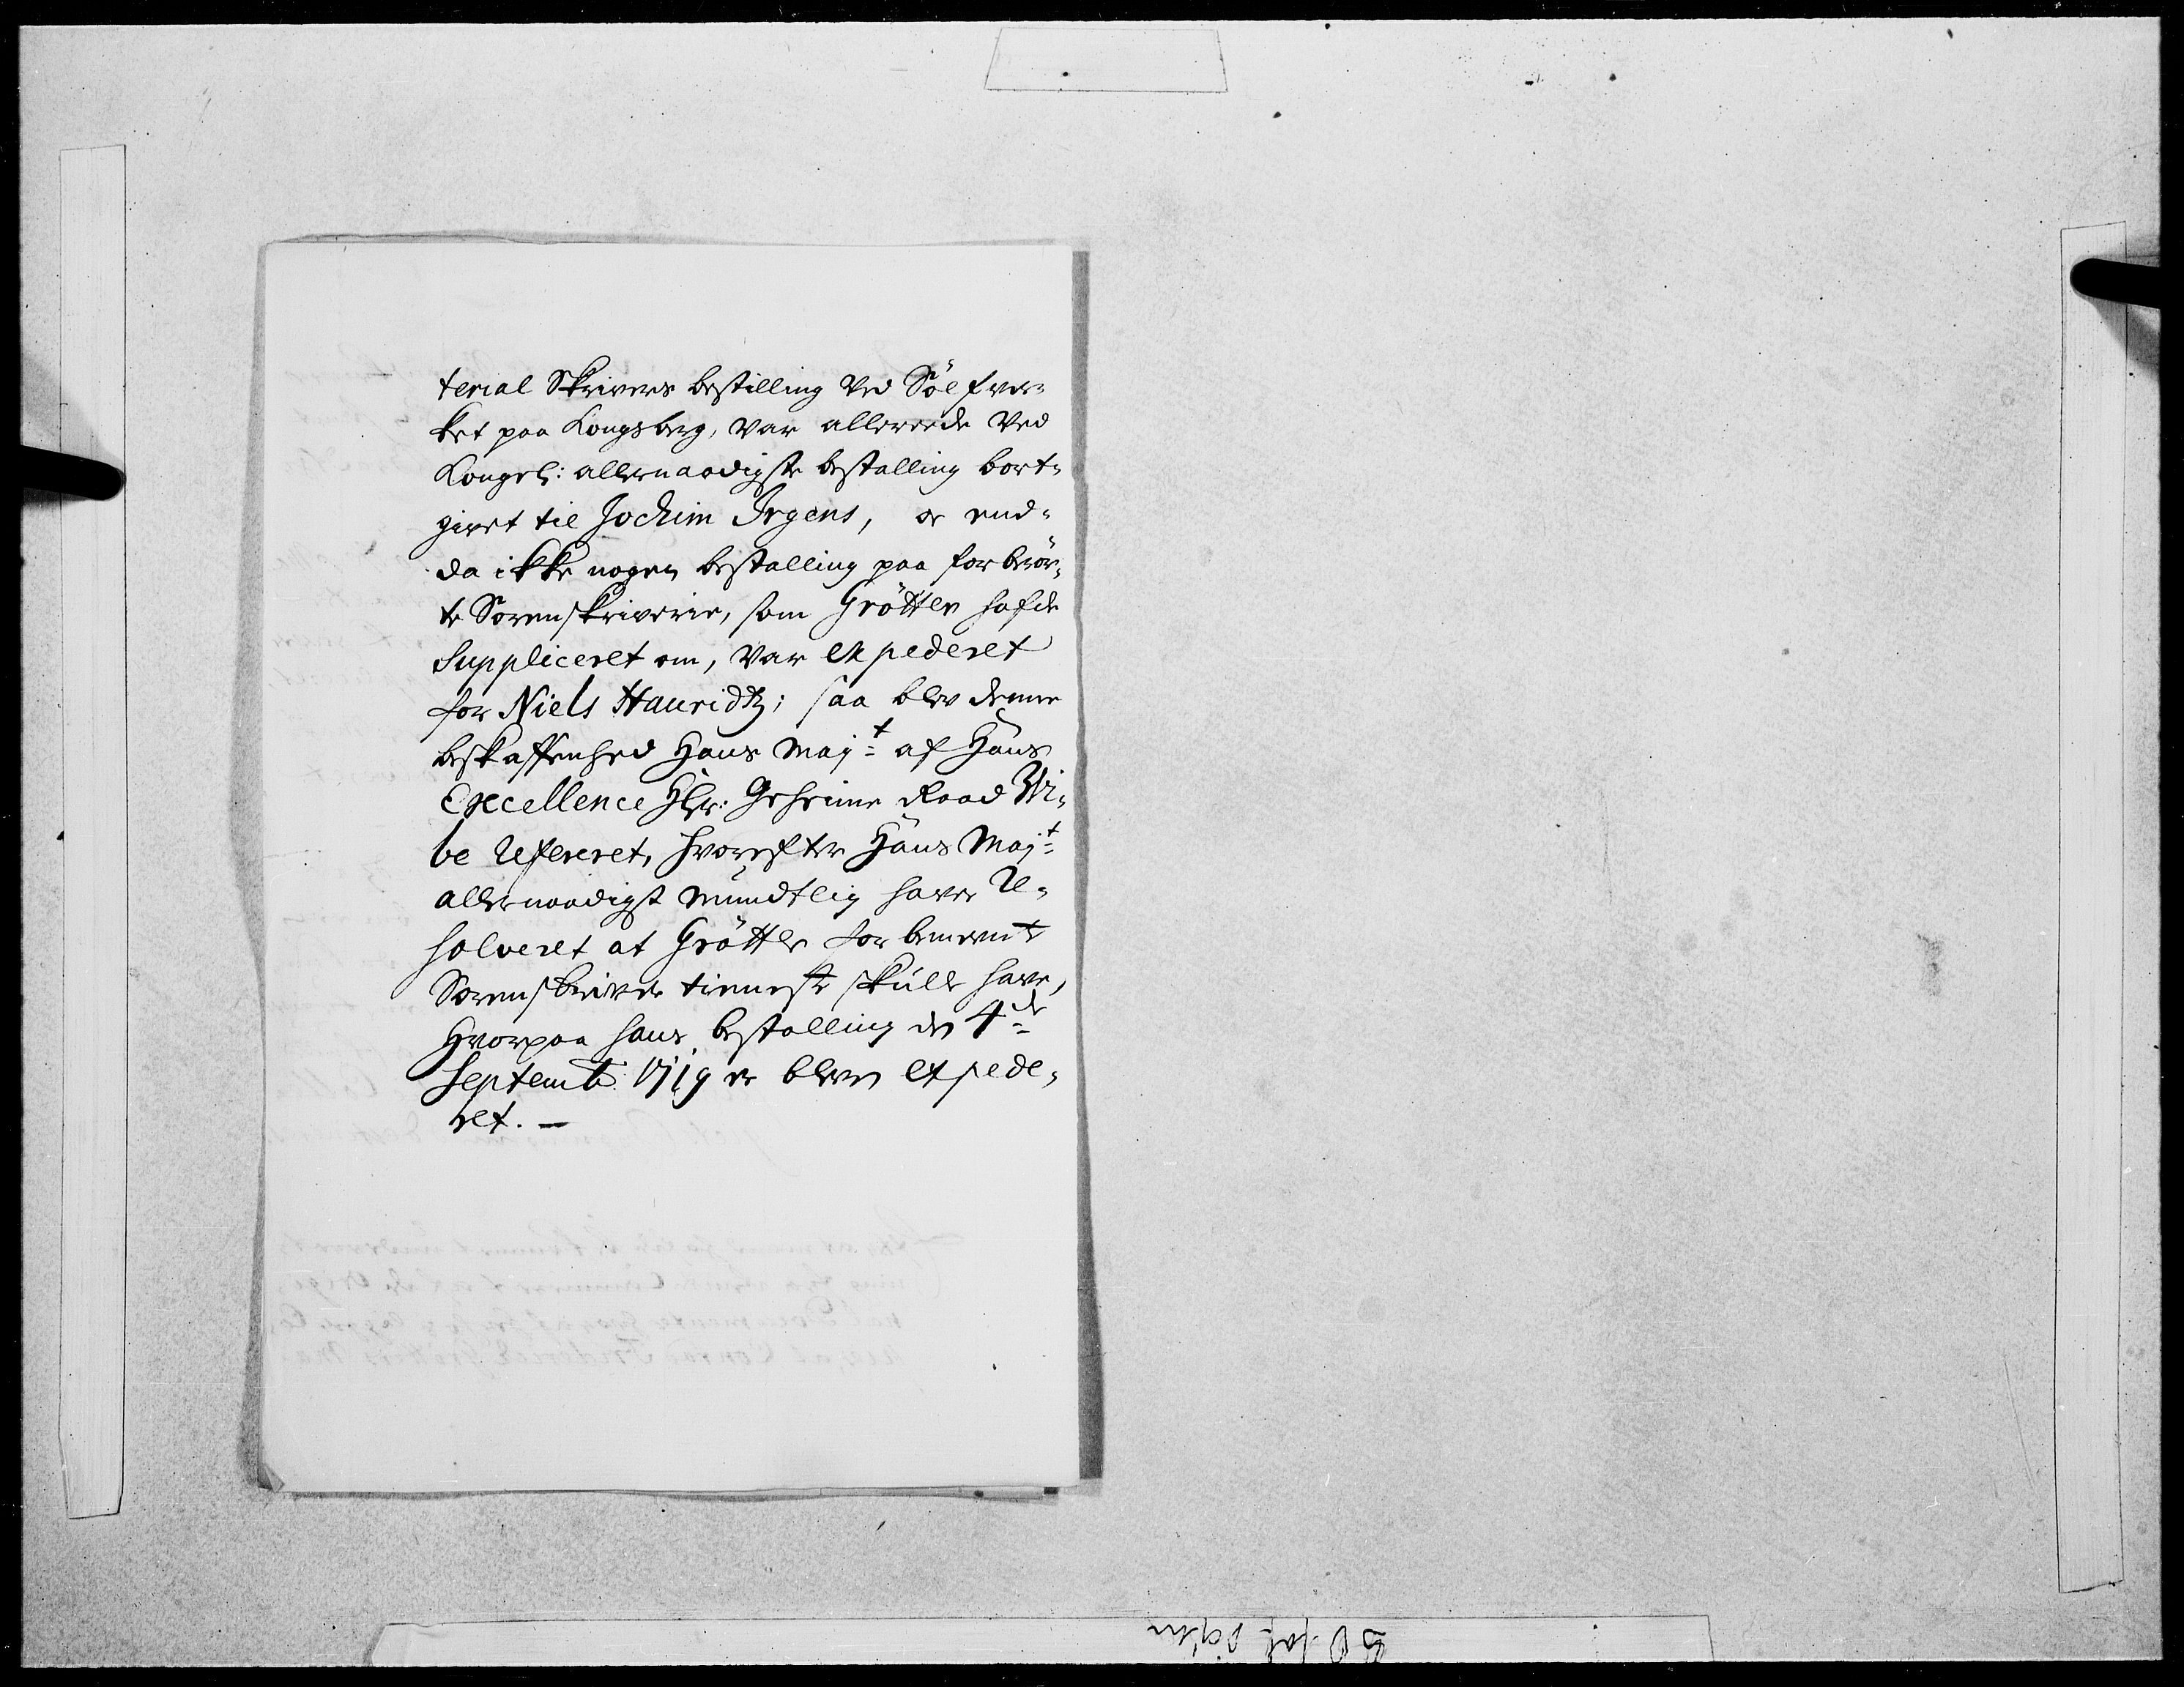 terial Skrivers bestilling ved Sölfver-
ket paa Kongsberg, var allereede ved
Kongel: allernaadigste bestalling bort-
givet til Jochim Irgens, og end-
da ikke nogen bestalling paa forberör-
te Sorenskriverie, som Gröttler hafde
Suppliceret om, var expederet
for Niels Hauridtz; saa blev denne
beskaffenhed Hans Majt af Hans
Excellence Hr: Geheime Raad Wi-
be Refereret, hvorefter Hans Majt
allernaadigst mundtlig haver Re-
solveret at Gröttler forbemeente
Sorenskriver tienneste skulle have,
hvorpaa hans bestalling den 4de
Septemb: 1719 er bleven expede-
ret. —